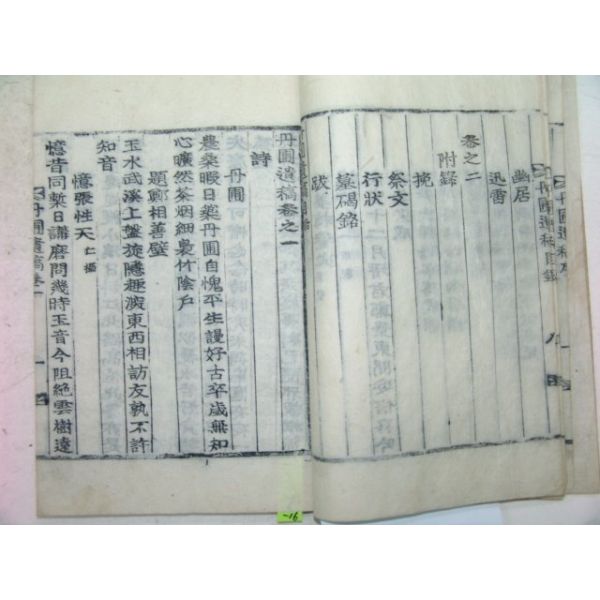 丹圃遺稿目錄
幽居
迅雷
卷之二
附錄
挽
祭文
行狀
墓碣銘
跋
丹圃遺稿卷之一
詩
丹圃
農桑暇日藥丹圃自愧平生謾好古卒歲無知
心曠然茶烟細裊竹陰戶
題鄭相善壁
玉水武溪上盤旋隱東西相訪友孰不許
知音
憶張性天 仁攝
憶昔同日講磨問幾時玉音今阻絶雲樹遠
丹圃遺稿卷一 一
-16